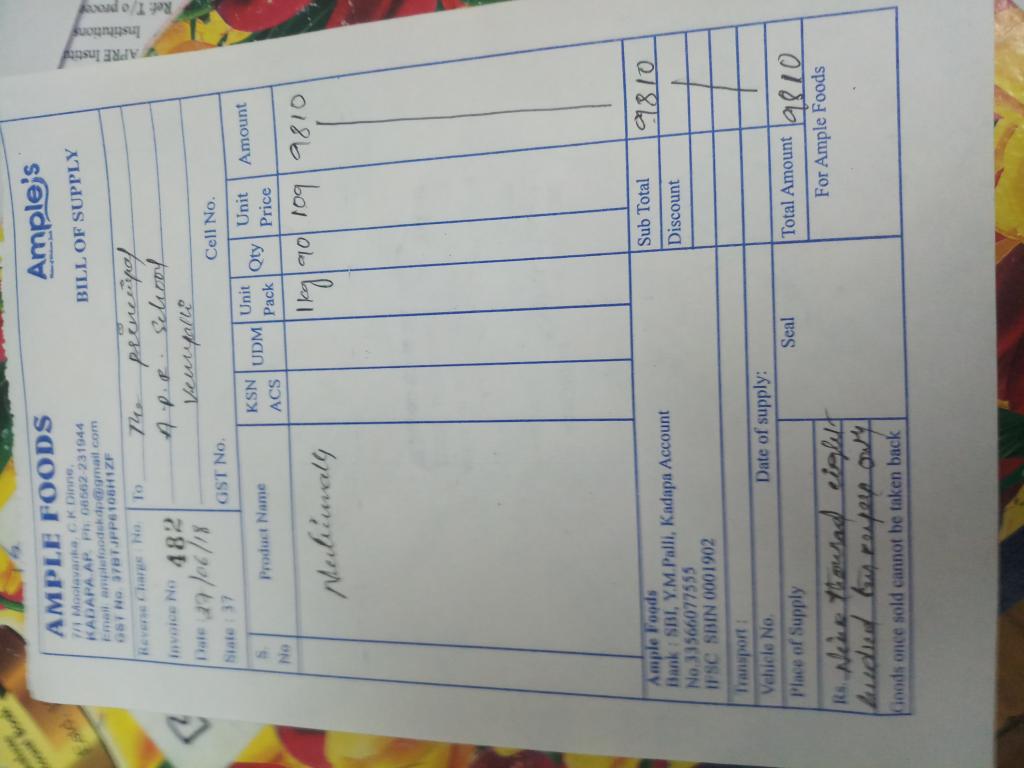 Ample's
AMPLE FOODS
BILL OF SUPPLY
7/1 Moolavanka, C.K Dinne,
KADAPA.AP. Ph: 08562-231944
Email: amplefoodskdp@gmail.com
GST No. 37BTJPP8108H1ZF
Reverse Charge : No.
Invoice No 482
Date : 29/06/18
State : 37
To The principal
A.P.R. School
Vempalli
Cell No.
GST No.
S. No
Product Name
KSN ACS
UDM
Unit Pack
Qty
Unit Price
Amount
1kg 90 109 9810
Ample Foods
Bank : SBI, Y.M.Palli, Kadapa Account
No.33566077555
IFSC SBIN 0001902
Sub Total 9810
Discount
Transport :
Vehicle No.
Date of supply:
Place of Supply
Seal
Total Amount 9810
For Ample Foods
Rs. Nine thousand eight
hundred ten rupees only
Goods once sold cannot be taken back
APRE Institu
Institutions
Ref: T/o proces